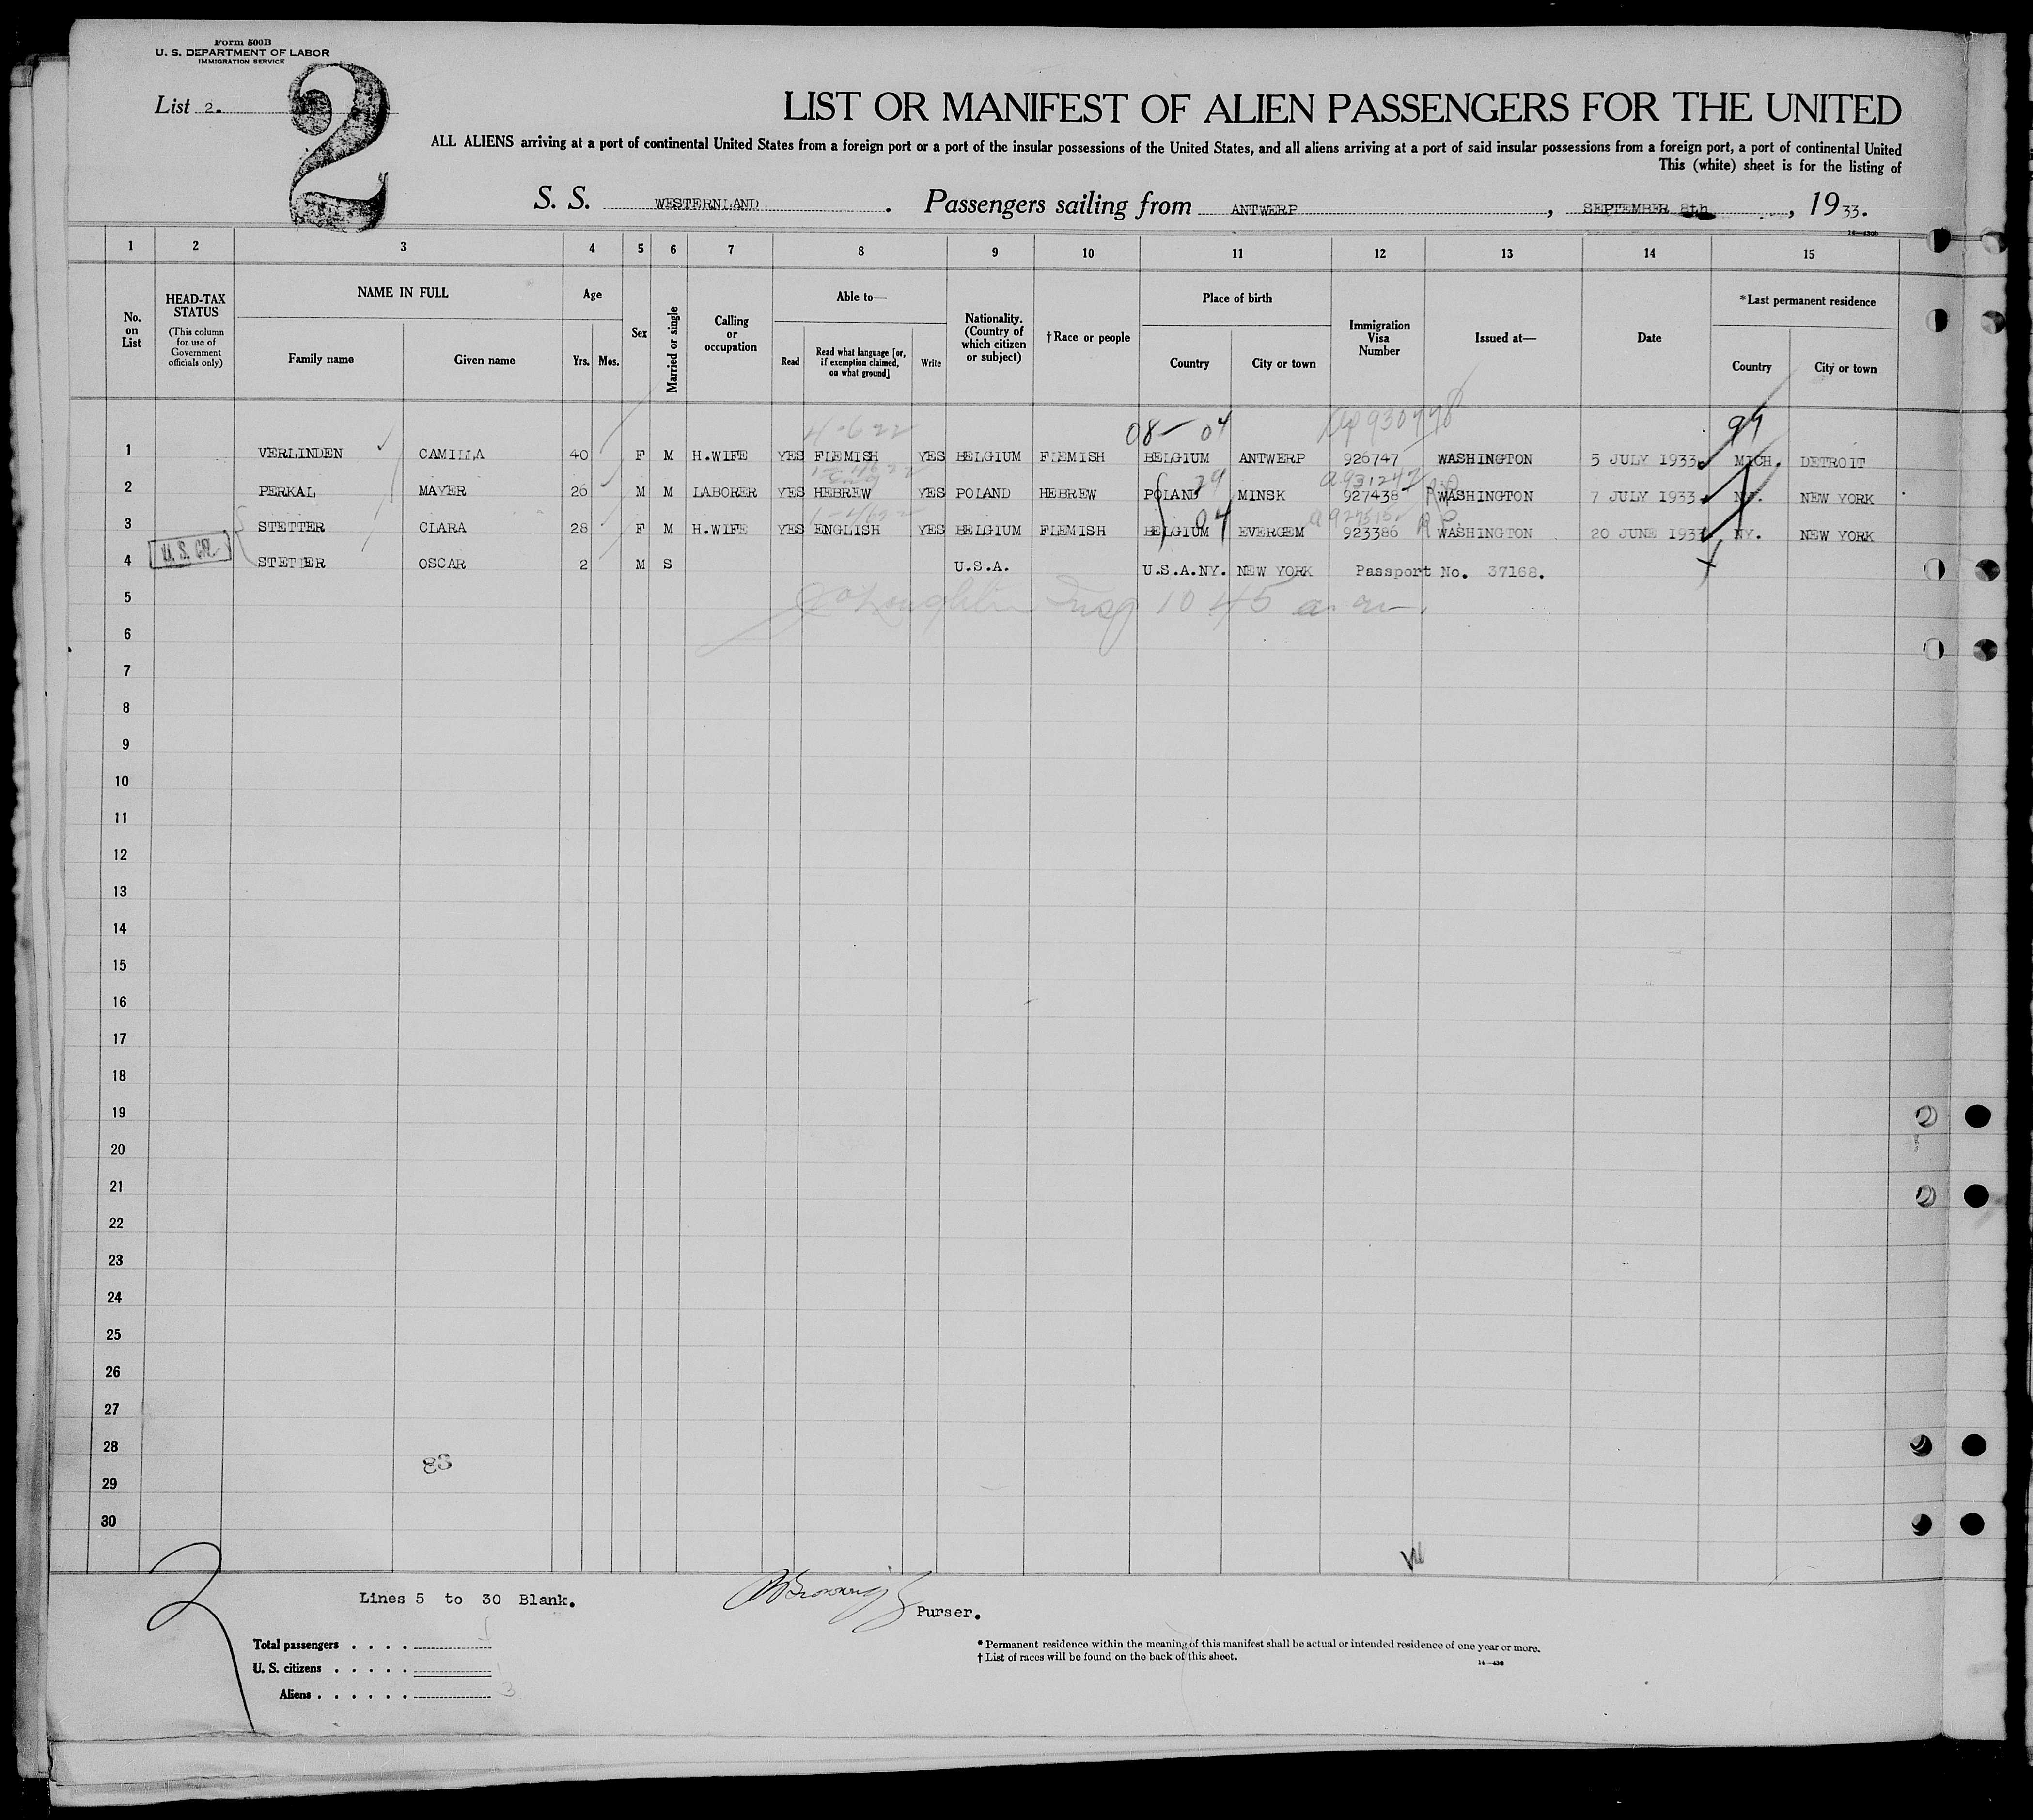 Form 500B
U. S. DEPARTMENT OF LABOR
IMMIGRATION SERVICE
List 2.
2
LIST OR MANIFEST OF ALIEN PASSENGERS FOR THE UNITED
ALL ALIENS arriving at a port of continental United States from a foreign port or a port of the insular possessions of the United States, and all aliens arriving at a port of said insular possessions from a foreign port, a port of continental United
This (white) sheet is for the listing of
S. S. WESTERNLAND. Passengers sailing from ANTWERP, SEPTEMBER 8th, 1933.
1 2 3 4 5 6 7 8 9 10 11 12 13 14 15
No. on List
HEAD-TAX STATUS (This column for use of Government officials only)
NAME IN FULL Family name Given name
Age Yrs. Mos.
Sex
Married or single
Calling or occupation
Able to— Read Read what language [or, if exemption claimed, on what ground] Write
Nationality. (Country of which citizen or subject)
†Race or people
Place of birth Country City or town
Immigration Visa Number
Issued at—
Date
*Last permanent residence Country City or town
08- 04 930778 99
1 VERLINDEN CAMILLA 40 F M H.WIFE YES FLEMISH YES BELGIUM FLEMISH BELGIUM ANTWERP 926747 WASHINGTON 5 JULY 1933 MICH. DETROIT
29 931242
2 PERKAL MAYER 26 M M LABORER YES HEBREW YES POLAND HEBREW POLAND MINSK 927438 WASHINGTON 7 JULY 1933 NY. NEW YORK
04
3 STETTER CLARA 28 F M H.WIFE YES ENGLISH YES BELGIUM FLEMISH BELGIUM EVERGEM 923386 WASHINGTON 20 JUNE 1933 NY. NEW YORK
4 STETTER OSCAR 2 M S U.S.A. U.S.A.NY. NEW YORK Passport No. 37168.
5 Insp 10 45 a.m.
6
7
8
9
10
11
12
13
14
15
16
17
18
19
20
21
22
23
24
25
26
27
28
29
30
Lines 5 to 30 Blank.
Purser.
Total passengers . . . .
U. S. citizens . . . . .
Aliens . . . . . . 3
* Permanent residence within the meaning of this manifest shall be actual or intended residence of one year or more.
† List of races will be found on the back of this sheet.